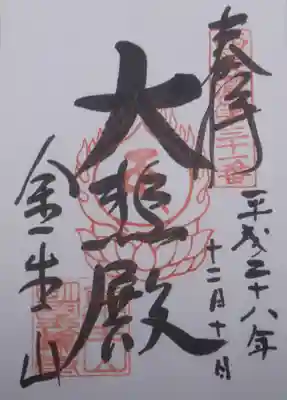 奉拝
平成二十八年
十二月十日
大悲殿
金生山